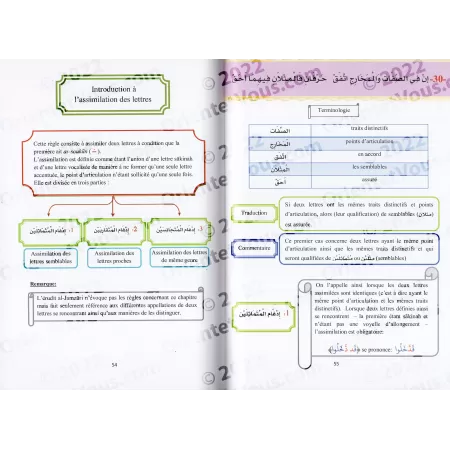 Introduction à
l'assimilation des lettres
Cette règle consiste à assimiler deux lettres à condition que la
première ait as-soukûn
L'assimilation est définie comme étant l'union d'une lettre sâkinah
et d'une lettre vocalisée de manière à ne former qu'une seule lettre
accentuée, le point d'articulation n'étant sollicité qu'une seule fois.
Elle est divisée en trois parties :
1- إدغام المتماثلين
2- إدغام المتقاربين
3- إدغام المتجانسين
Assimilation des
lettres semblables
Assimilation des
lettres proches
Assimilation des lettres
de même genre
Remarque:
L'érudit al-Jamzûri n'évoque pas les règles concernant ce chapitre
mais fait seulement référence aux différentes appellations de deux
lettres se rencontrant ainsi qu'aux manières de les distinguer.
54
30- إن في الصفات والمخارج اتفق حرفان فالمثلان فيهما أحق
Terminologie
الصفات traits distinctifs
المخارج points d'articulation
اتفق en accord
المثلان les semblables
أحق assuré
Traduction
Si deux lettres ont les mêmes traits distinctifs et points
d'articulation, alors (leur qualification) de semblables (مثلان)
est assurée.
Commentaire
Ce premier cas concerne deux lettres ayant le même point
d'articulation ainsi que les mêmes traits distinctifs et qui
seront qualifiées de متماثلين ou مثلين (semblables)
1- إدغام المتماثلين
On l'appelle ainsi lorsque les deux lettres
assimilées sont identiques (c'est à dire ayant le
même point d'articulation et les mêmes traits
distinctifs). Lorsque deux lettres définies ainsi
se rencontrent – la première étant sâkinah et
n'étant pas une voyelle d'allongement –
l'assimilation est obligatoire:
se prononce:
55
© 2022